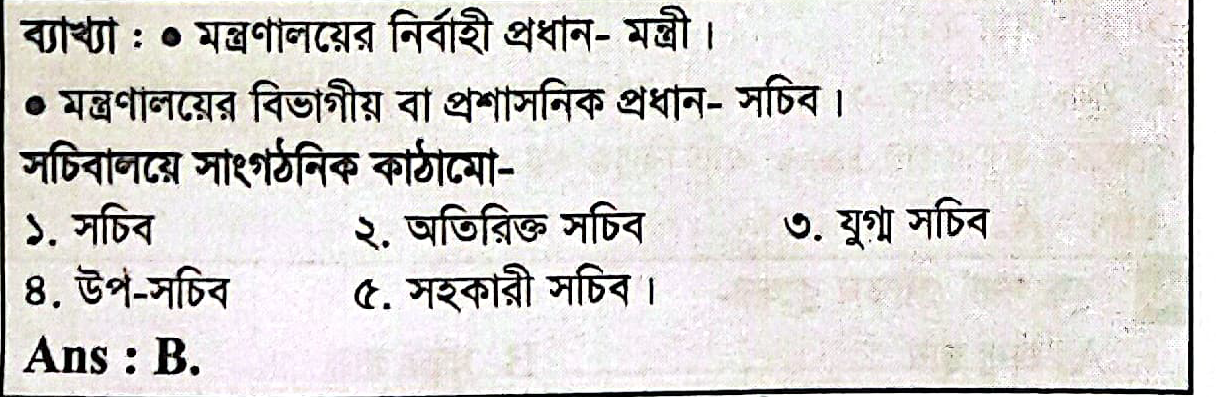 ব্যাখ্যা : ● মন্ত্রণালয়ের নির্বাহী প্রধান- মন্ত্রী।
● মন্ত্রণালয়ের বিভাগীয় বা প্রশাসনিক প্রধান- সচিব।
সচিবালয়ে সাংগঠনিক কাঠামো-
১. সচিব ২. অতিরিক্ত সচিব ৩. যুগ্ম সচিব
৪. উপ-সচিব ৫. সহকারী সচিব।
Ans : B.